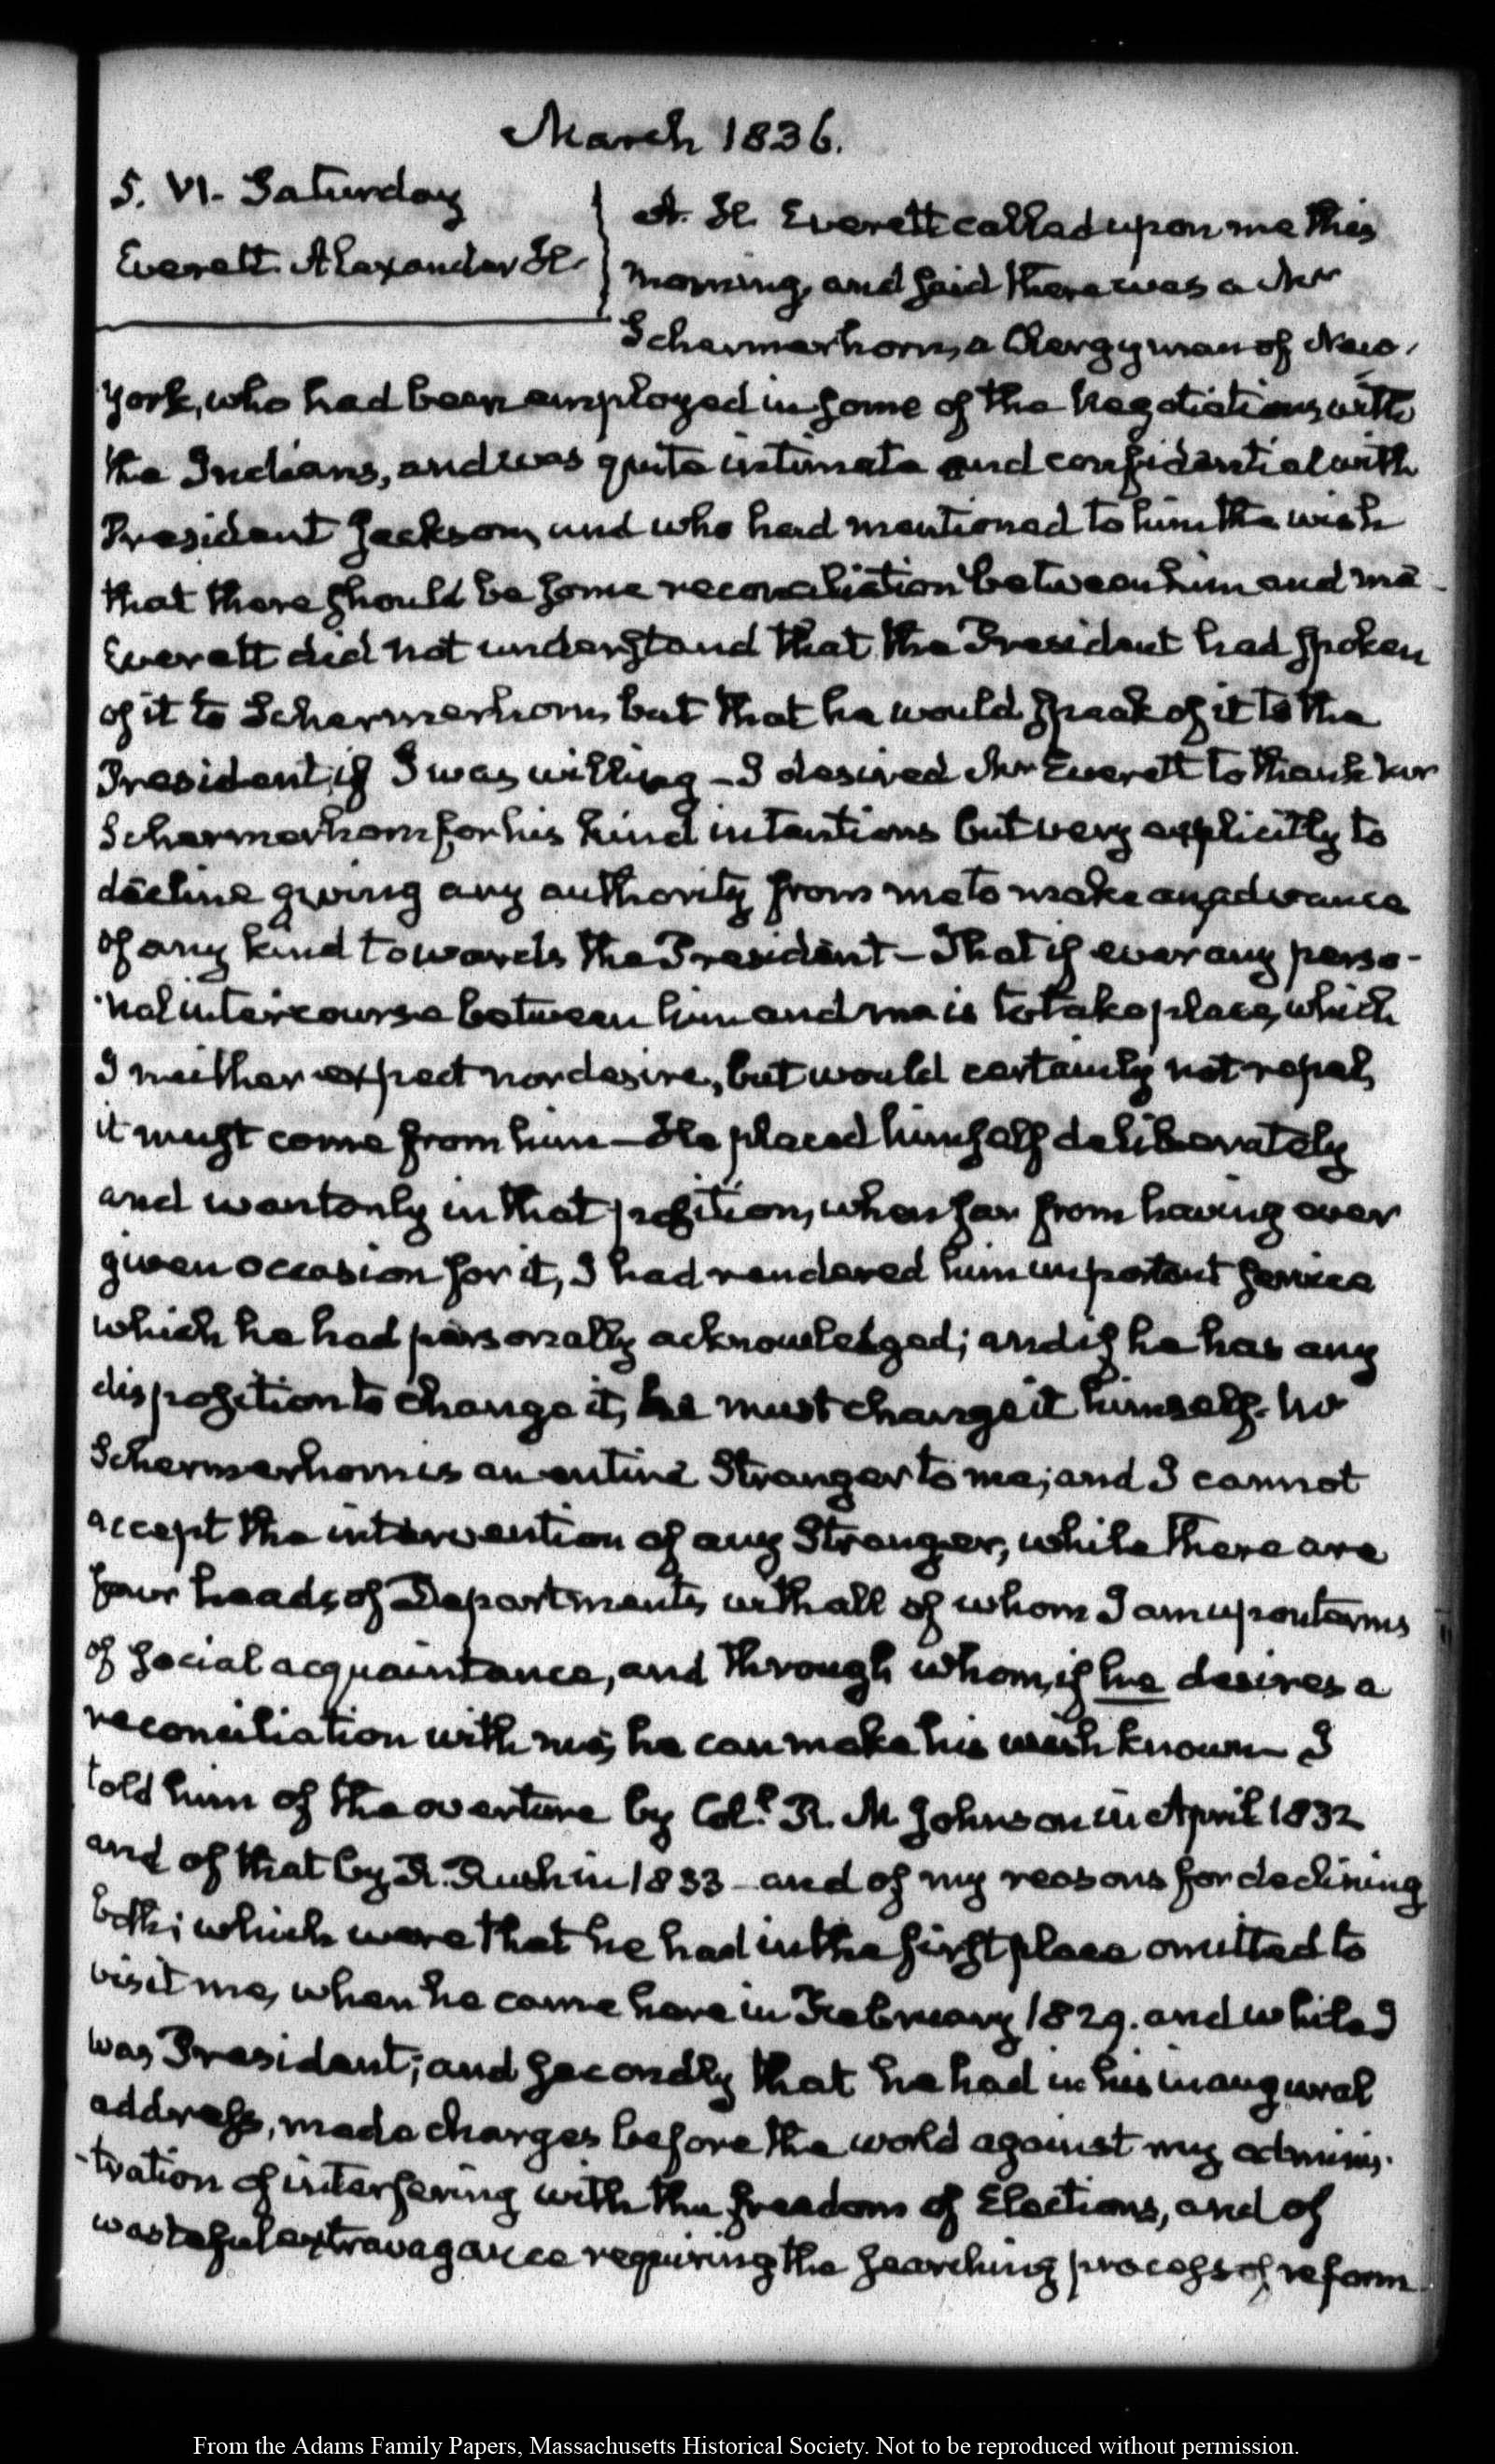 March 1836.
5. VI. Saturday
Everett. Alexander H.
A. H. Everett called upon me this
morning, and said there was a Mr
Schermerhorn, a Clergyman of New-
York, who had been employed in some of the Negotiations with
the Indians, and was quite intimate and confidential with
President Jackson, and who had mentioned to him the wish
that there should be some reconciliation between him and me -
Everett did not understand that the President had spoken
of it to Schermerhorn, but that he would speak of it to the
President, if I was willing - I desired Mr Everett to thank Mr
Schermerhorn for his kind intentions but very explicitly to
decline giving any authority from me to make any advance
of any kind towards the President - That if ever any perso-
-nal intercourse between him and me is to take place, which
I neither expect nor desire, but would certainly not repel,
it must come from him - He placed himself deliberately
and wantonly in that position, when far from having ever
given occasion for it, I had rendered him important service
which he had personally acknowledged; and if he has any
disposition to change it, he must change it himself. Mr
Schermerhorn is an entire Stranger to me; and I cannot
accept the intervention of any Stranger, while there are
four heads of Departments with all of whom I am upon terms
of social acquaintance, and through whom, if he desires a
reconciliation with me, he can make his wish known - I
told him of the overture by Col.l R. M. Johnson in April 1832
and of that by R. Rush in 1833 - and of my reasons for declining
both; which were that he had in the first place omitted to
visit me, when he came here in February 1829. and while I
was President; and secondly that he had in his inaugural
address, made charges before the world against my adminis-
-tration of interfering with the freedom of Elections, and of
wasteful extravagance requiring the searching process of reform
From the Adams Family Papers, Massachusetts Historical Society. Not to be reproduced without permission.